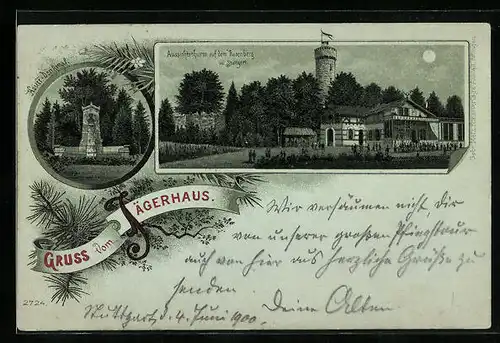 Aussichtsthurm auf dem Hasenberg
bei Stuttgart.
GRUSS vom JÄGERHAUS.
Wir versäumen nicht, dir
von unserer großen Pfingsttour
auch von hier aus herzliche Grüße zu
senden. Deine Alten
Stuttgart, d. 4. Juni 1900.
2724